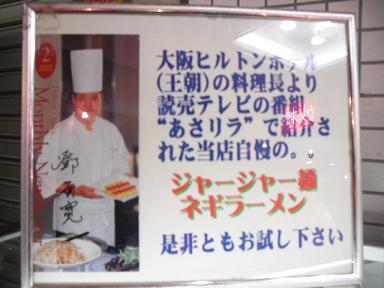 大阪ヒルトンホテル
(王朝)の料理長より
読売テレビの番組
“あさリラ”で紹介さ
れた当店自慢の。
ジャージャー麺
ネギラーメン
是非ともお試し下さい
2
2002